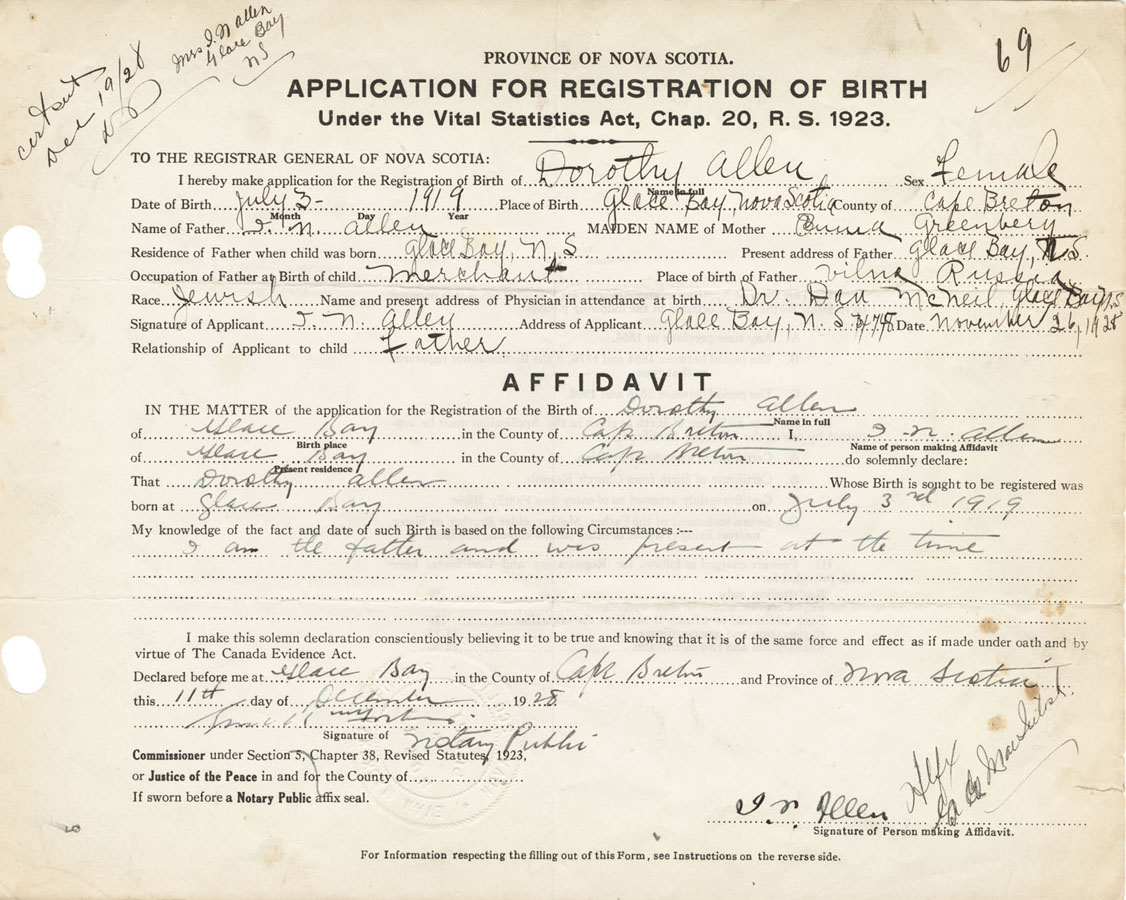 Mrs I. N Allen
Glace Bay
NS
cert out
Dec 19/28
69
PROVINCE OF NOVA SCOTIA.
APPLICATION FOR REGISTRATION OF BIRTH
Under the Vital Statistics Act, Chap. 20, R. S. 1923.
TO THE REGISTRAR GENERAL OF NOVA SCOTIA:
I hereby make application for the Registration of Birth of Dorothy Allen Sex Female
Name in full
Date of Birth July 3- 1919 Place of Birth Glace Bay, Nova Scotia County of Cape Breton
Month Day Year
Name of Father I. N. Allen MAIDEN NAME of Mother Emma Greenberg
Residence of Father when child was born Glace Bay, N, S Present address of Father Glace Bay, N.S.
Occupation of Father at Birth of child Merchant Place of birth of Father Vilna Russia
Race Jewish Name and present address of Physician in attendance at birth Dr. Dan McNeil Glace Bay NS
Signature of Applicant I. N. Allen Address of Applicant Glace Bay, N. S. Date November 26, 1928
Relationship of Applicant to child Father
AFFIDAVIT
IN THE MATTER of the application for the Registration of the Birth of Dorothy Allen
Name in full
of Glace Bay in the County of Cape Breton I, I. N. Allen
Birth place Name of person making Affidavit
of Glace Bay in the County of Cape Breton do solemnly declare:
Present residence
That Dorothy Allen Whose Birth is sought to be registered was
born at Glace Bay on July 3rd 1919
My knowledge of the fact and date of such Birth is based on the following Circumstances :--
I am the father and was present at the time
I make this solemn declaration conscientiously believing it to be true and knowing that it is of the same force and effect as if made under oath and by
virtue of The Canada Evidence Act.
Declared before me at Glace Bay in the County of Cape Breton and Province of Nova Scotia
this 11th day of December 1928
Signature of Notary Public
Commissioner under Section 5, Chapter 38, Revised Statutes, 1923,
or Justice of the Peace in and for the County of
If sworn before a Notary Public affix seal.
I. N. Allen
Signature of Person making Affidavit.
For Information respecting the filling out of this Form, see Instructions on the reverse side.